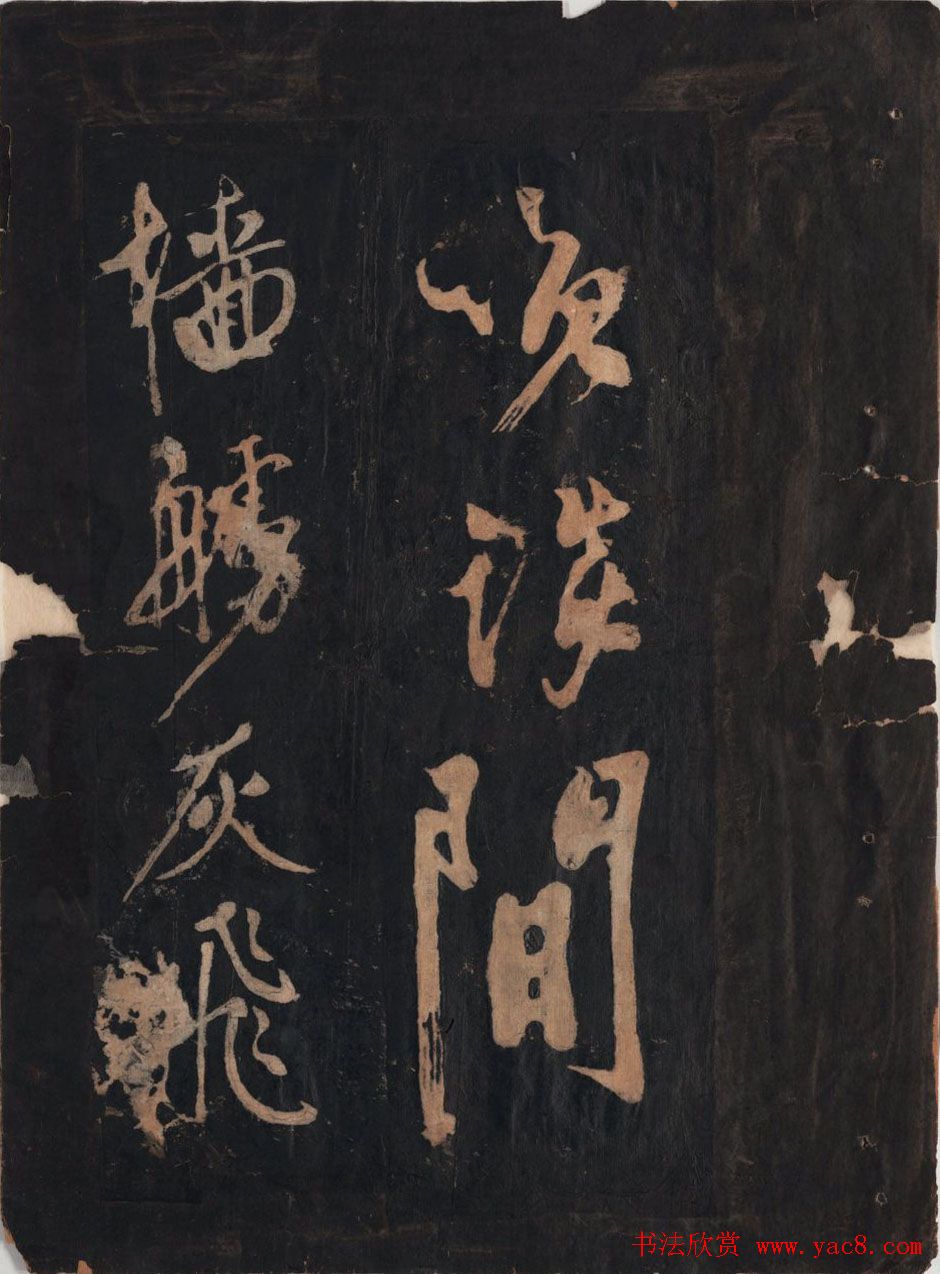 笑談間
檣艣灰飛
书法欣赏 www.yac8.com